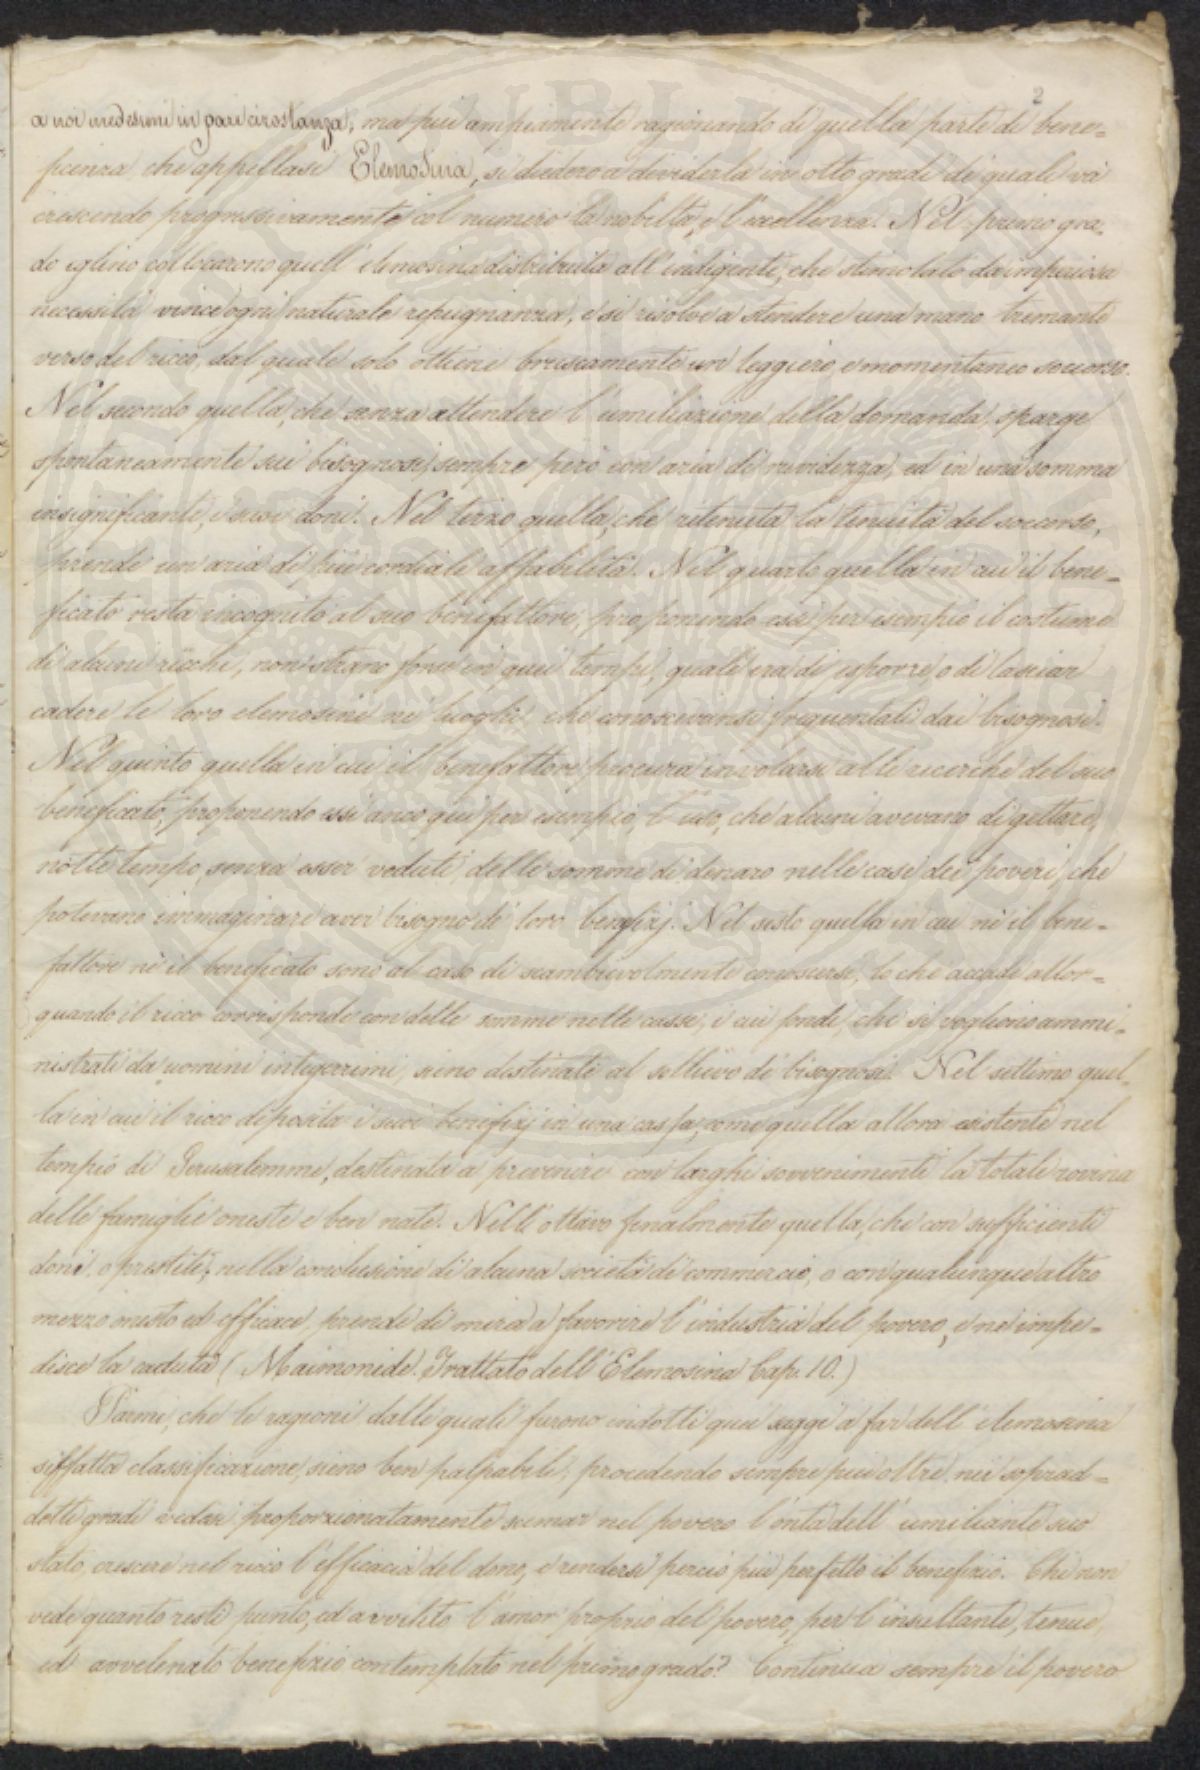 2
a noi medesimi in pari circostanza, ma più ampiamente ragionando di quella parte di bene=
ficenza che appellasi Elemosina, si diedero a dividerla in otto gradi di quali và
crescendo progressivamente col numero la nobiltà, e l'eccellenza. Nel primo gra=
do eglino collocarono quell'elemosina distribuita all'indigente, che stimolato da imperiosa
necessità vince ogni naturale repugnanza, e si risolve a stendere una mano tremante
verso del ricco, dal quale solo ottiene bruscamente un leggiero, e momentaneo soccorso.
Nel secondo quella, che senza attendere l'umiliazione della domanda, sparge
spontaneamente sui bisognosi, sempre però con aria di ruvidezza, ed in una somma
insignificante, i suoi doni. Nel terzo quella, che ritenuta la tenuità del soccorso,
prende un'aria di più cordiale affabilità. Nel quarto quella in cui il bene=
ficato resta incognito al suo benefattore, proponendo essi per esempio il costume
di alcuni ricchi, non strano forse in quei tempi, quale era di esporre, o di lasciar
cadere le loro elemosine ne' luoghi che conoscevansi frequentati dai bisognosi.
Nel quinto quella in cui il benefattore procura involarsi alle ricerche del suo
beneficato, proponendo essi anco qui per esempio, l'uso, che alcuni avevano di gettare,
notte tempo, senza esser veduti, delle somme di denaro nelle case dei poveri, che
potevano immaginare aver bisogno de' loro benefizj. Nel sesto quella in cui nè il bene=
fattore nè il beneficato sono al caso di scambievolmente conoscersi, lo che accade allor=
quando il ricco corrisponde con delle somme nelle casse, i cui fondi, che si vogliono ammi=
nistrati da uomini integerrimi, sieno destinati al sollievo de' bisognosi. Nel settimo quel=
la in cui il ricco deposita i suoi benefizj in una cassa, come quella allora esistente nel
tempio di Gerusalemme, destinata a prevenire con larghi sovvenimenti la totale rovina
delle famiglie oneste e ben nate. Nell'ottavo finalmente quella, che con sufficienti
doni, o prestiti, nella conclusione di alcuna società di commercio, o con qualunque altro
mezzo onesto ed efficace, prende di mira a favorire l'industria del povero, e ne impe=
disce la caduta (Maimonide. Trattato dell'Elemosina Cap. 10.)
Parmi, che le ragioni dalle quali furono indotti quei saggi a far dell'elemosina
siffatta classificazione, sieno ben palpabili; procedendo sempre più oltre nei soprad=
detti gradi vedesi proporzionatamente scemar nel povero l'onta dell'umiliante suo
stato, crescere nel ricco l'efficacia del dono, e rendersi perciò più perfetto il benefizio. Chi non
vede quanto resti punto, ed avvilito l'amor proprio del povero, per l'insultante, tenue,
ed avvelenato benefizio contemplato nel primo grado? Continua sempre il povero